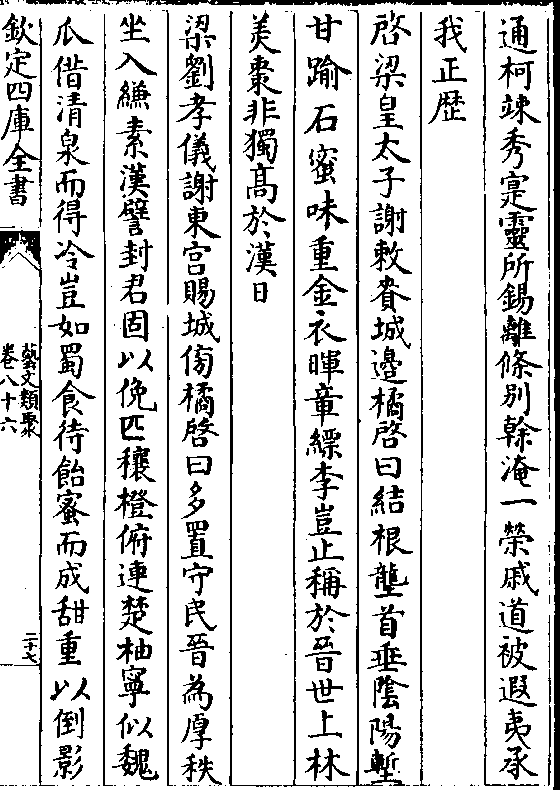 通柯竦秀寔靈所錫離條别榦淹一榮戚道被遐夷承
我正歴
啓梁皇太子謝敕賚城邊橘啓曰結根壟首垂陰陽塹
甘踰石蜜味重金衣暉章縹李豈止稱於晉世上林
美棗非獨髙於漢日
梁劉孝儀謝東宫賜城傍橘啓曰多置守民晉為厚秩
坐入縑素漢譬封君固以俛匹穰橙俯連楚柚寧似魏
瓜借清泉而得冷豈如蜀食待飴蜜而成甜重以倒影
欽定四庫全書
藝文類聚
卷八十六
二十七